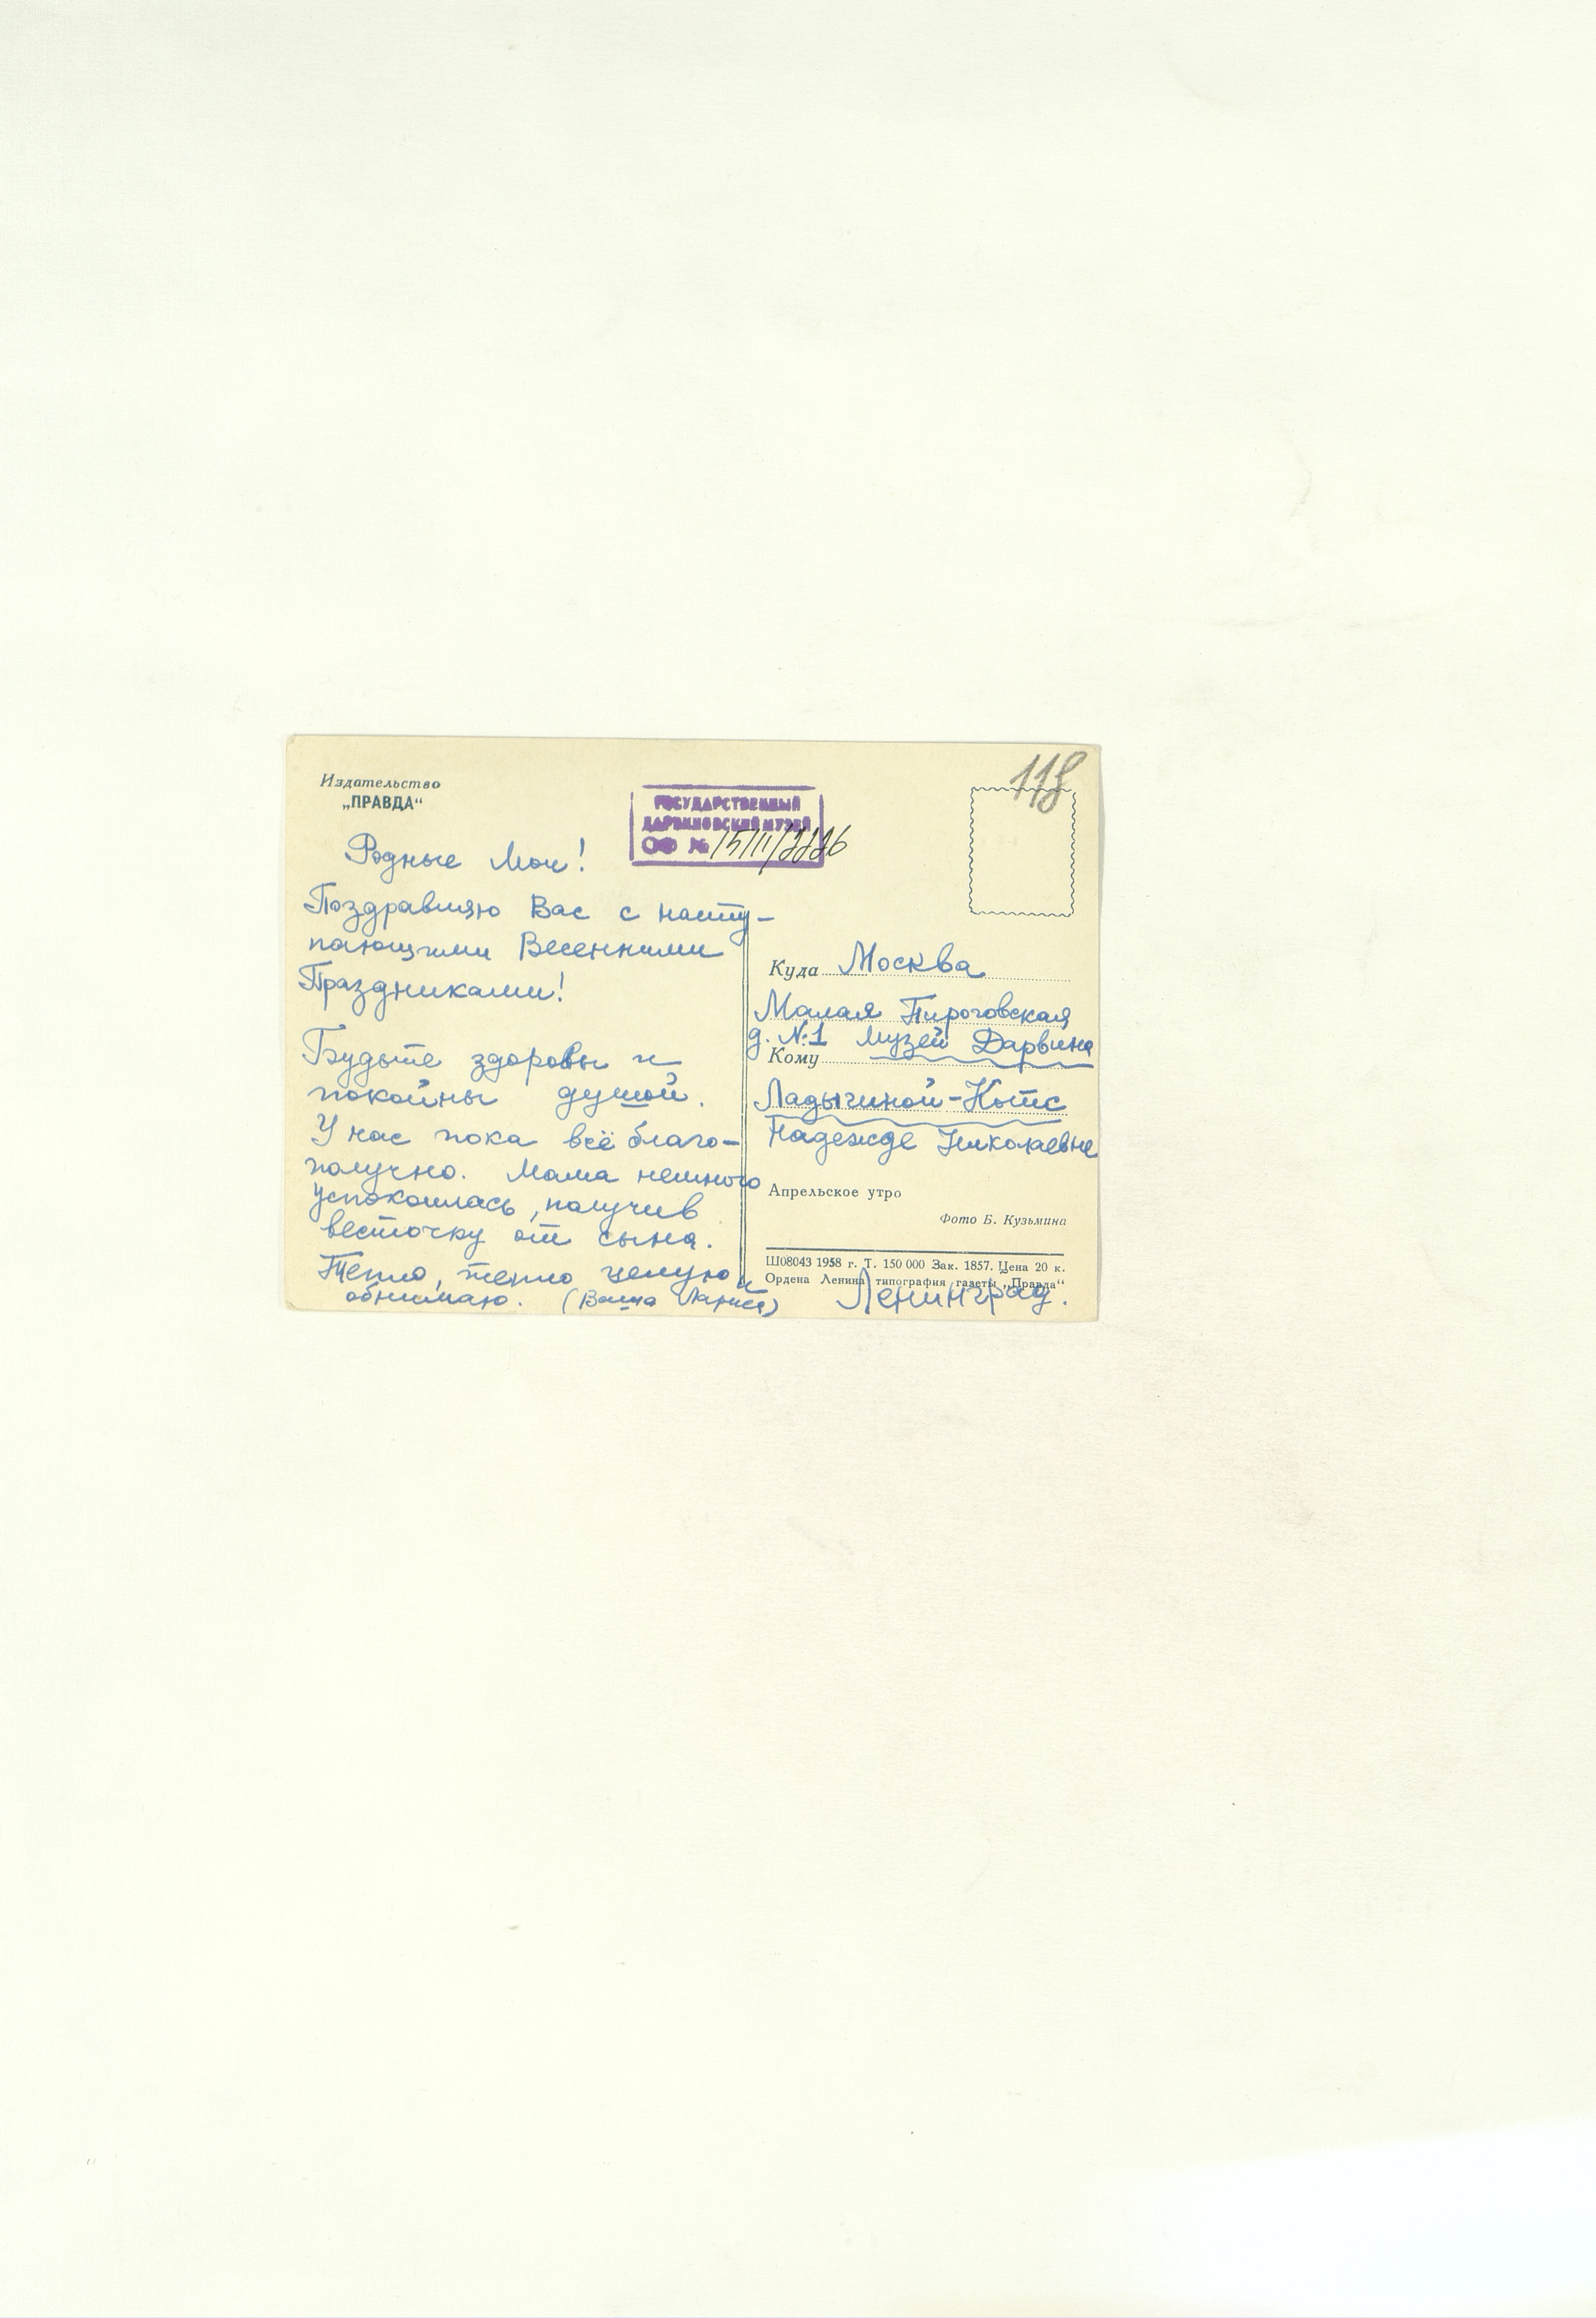 Издательство
„ПРАВДА“
ГОСУДАРСТВЕННЫЙ
ДАРВИНОВСКИЙ МУЗЕЙ
ОФ №
118
Родные Мои!
Поздравляю Вас с насту-
пающими Весенними
Праздниками!
Будьте здоровы и
покойны душой.
У нас пока всё благо-
получно. Мама немного
успокоилась, получив
весточку от сына.
Тепло, тепло целую и
обнимаю. (Ваша
Куда Москва
Малая Пироговская
д. №1 Музей Дарвина
Кому
Ладыгиной-Котс
Надежде Николаевне
Апрельское утро
Фото Б. Кузьмина
Ш08043 1958 г. Т. 150 000 Зак. 1857. Цена 20 к.
Ордена Ленина типография газеты „Правда“
Ленинград.